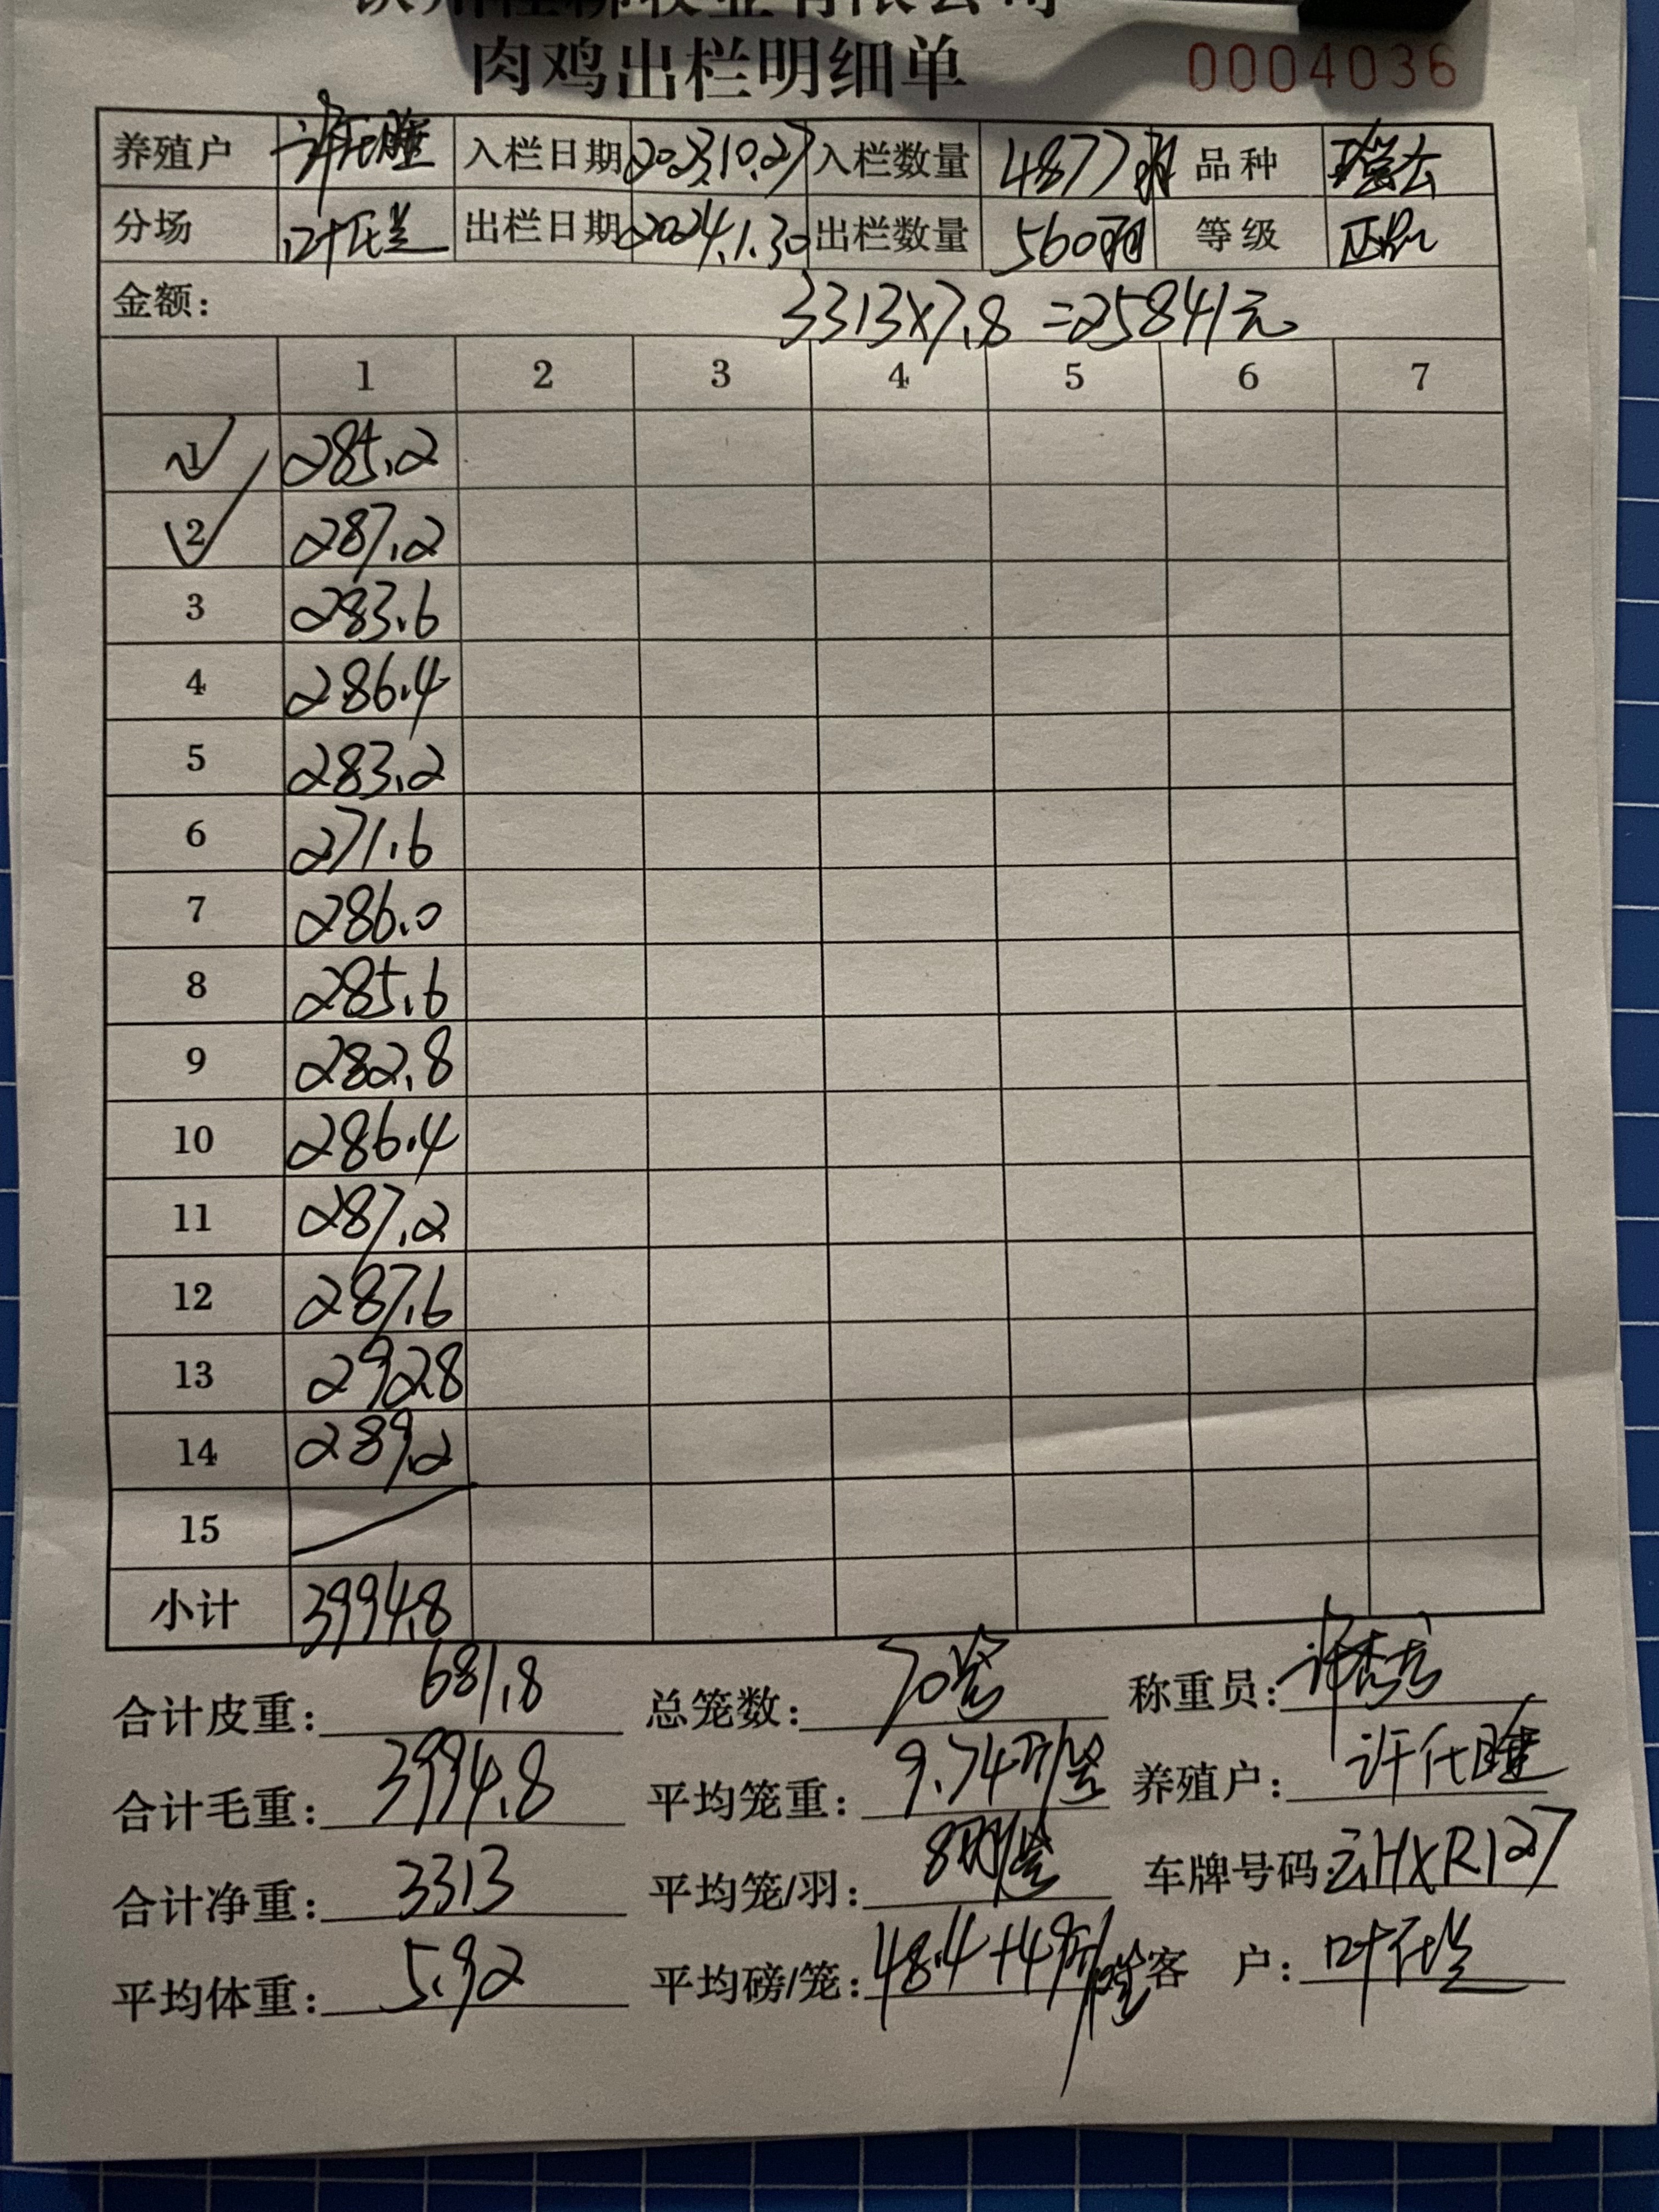 肉鸡出栏明细单 0004036
养殖户 许仕 入栏日期 2023.10.27 入栏数量 4877羽 品种
分场 叶仕兰 出栏日期 2024.1.30 出栏数量 560羽 等级 正品
金额： 3313×7.8=25841元
1 2 3 4 5 6 7
1 285.2
2 287.2
3 283.6
4 286.4
5 283.2
6 271.6
7 286.0
8 285.6
9 282.8
10 286.4
11 287.2
12 287.6
13 292.8
14 289.2
15
小计 3994.8
合计皮重： 681.8 总笼数： 70笼 称重员：
合计毛重： 3994.8 平均笼重： 9.74斤/笼 养殖户： 许仕
合计净重： 3313 平均笼/羽： 8羽/笼 车牌号码：云HXR127
平均体重： 5.92 平均磅/笼： 48.4+4斤/笼 客 户： 叶仕兰